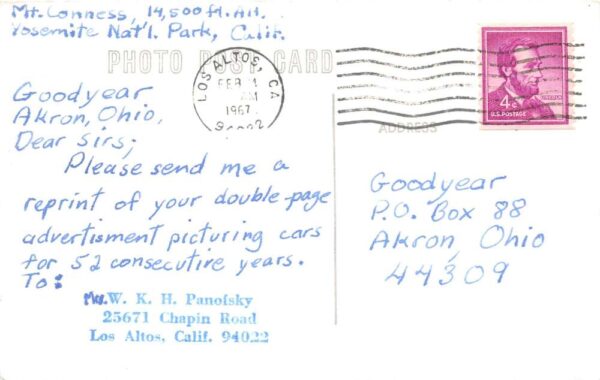 Mt. Conness, 14,500 ft. Alt.
Yosemite Nat'l. Park, Calif.
PHOTO POST CARD
LOS ALTOS, CA
FEB
1967
4¢
LINCOLN
U.S. POSTAGE
ADDRESS
Goodyear
Akron, Ohio,
Dear Sirs;
Please send me a
reprint of your double-page
advertisment picturing cars
for 52 consecutive years.
To:
W. K. H. Panofsky
25671 Chapin Road
Los Altos, Calif. 94022
Goodyear
P.O. Box 88
Akron, Ohio
44309